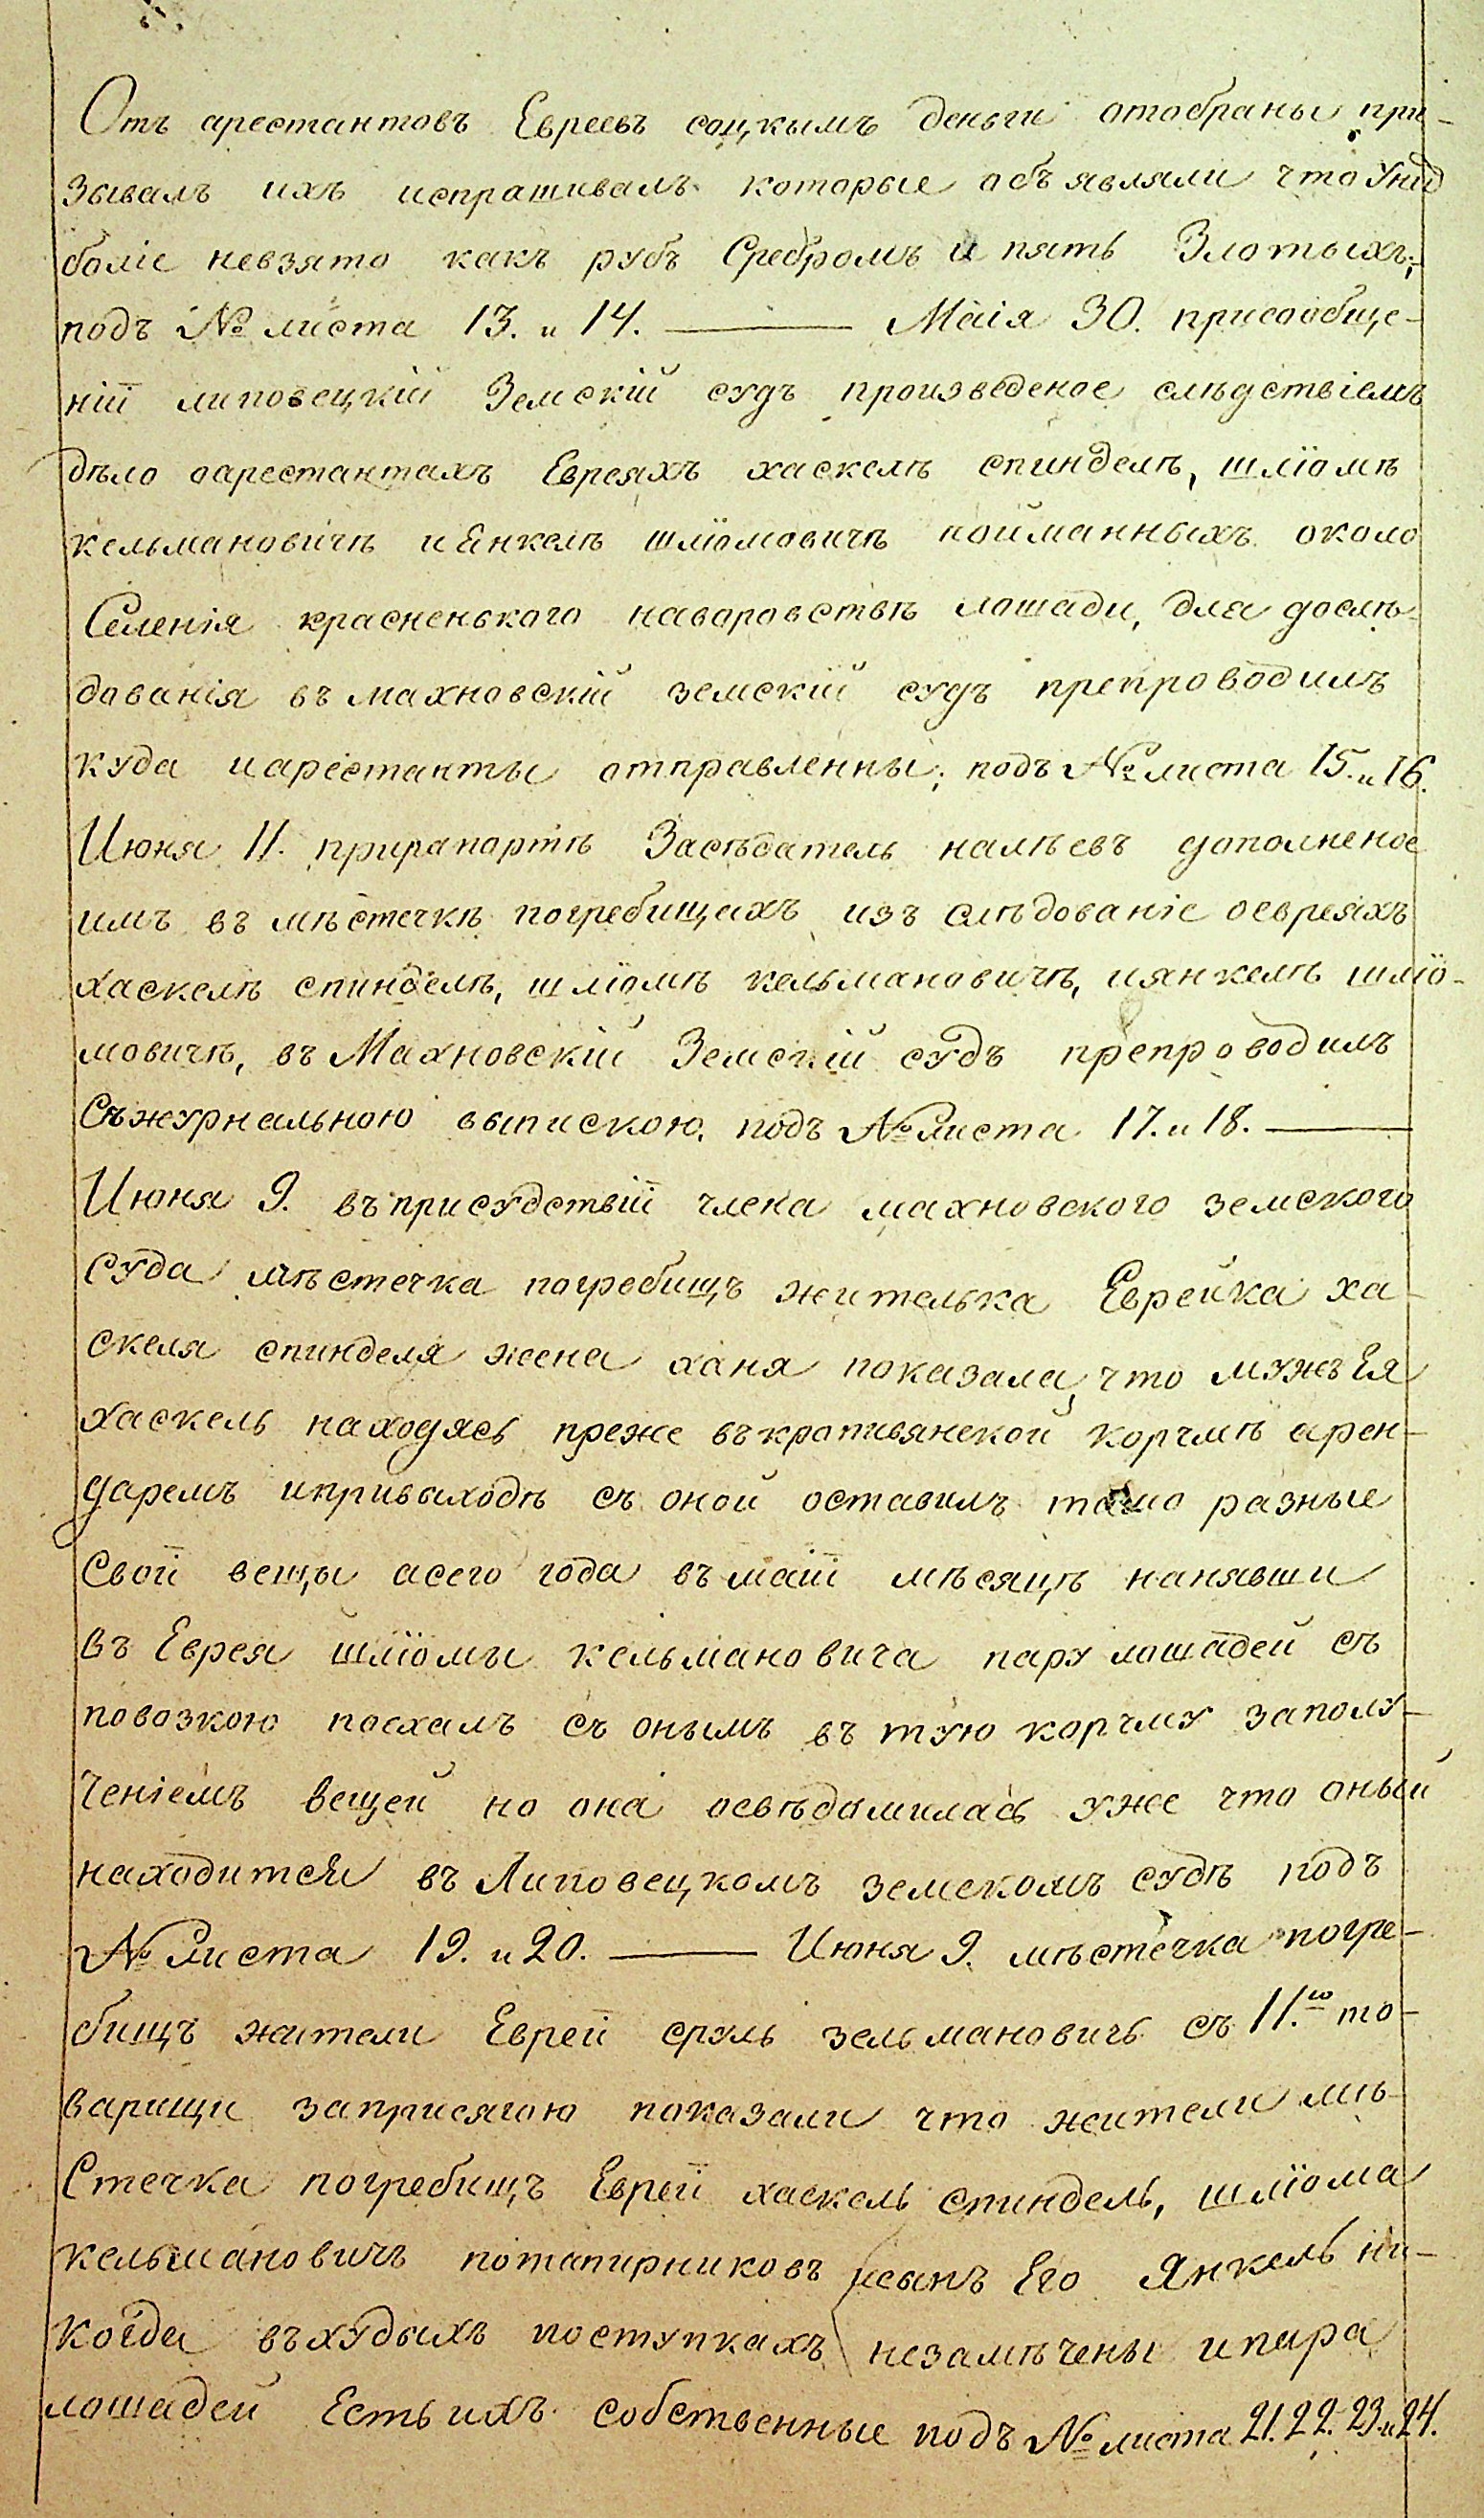 Отъ арестантовъ Евреевъ соцкымъ деньги отобраны при-
зывалъ ихъ испрашивалъ которые объявляли что Унид
боліе невзято какъ рубъ Сребромъ и пять Злотыхъ;
подъ № листа 13. и 14. ——— Маія 30. присообще-
ніи липовецкій Земскій судъ произведеное слѣдствіемъ
дѣло оарестантахъ Евреяхъ хаскелѣ спинделѣ, шліомѣ
кельмановичѣ и Янкелѣ шліомовичѣ пойманныхъ около
Селенія красненького наворовствѣ лошади, для дослѣ-
дованія въ махновскій земскій судъ препроводилъ
куда иарестанты отправленны; подъ № листа 15. и 16.
Июня 11. прирапортѣ Засѣдатель налѣевъ дополненое
имъ въ мѣстечкѣ погребищахъ изъ слѣдованіе оевреяхъ
хаскелѣ спинделѣ, шліомѣ кельмановичѣ, иянкелѣ шліо-
мовичѣ, въ Махновскій Земскій судъ препроводилъ
Съжурнальною выпискою. подъ № листа 17. и 18. ———
Июня 9. въприсудствіи члена махновского земского
суда мѣстечка погребищъ жителька Еврейка ха-
скеля спинделя жена ханя показала, что мужъ Ея
хаскель находясь преже въкропивянской корчмѣ арен-
даремъ ипривыходѣ съ оной оставилъ тамо разные
свои вещы асего года въ маіи мѣсяцѣ нанявши
въ Еврея шліомы кельмановича пару лошадей съ
повозкою поехалъ съ онымъ въ тую корчму заполу-
ченіемъ вещей но она освѣдомилась уже что оный
находится въ Липовецкомъ земскомъ судѣ подъ
№ листа 19. и 20. ——— Июня 9. мѣстечка погре-
бищъ жители Евреи сруль зельмановичъ съ 11.ю то-
варищи заприсягою показали что жители мѣ-
стечка погребищъ Евреи хаскель спиндель, шліома
кельмановичъ потапирниковъ исынъ Его Янкель ни-
когда въхудыхъ поступкахъ незамѣчены ипара
лошадей Есть ихъ собственные подъ № листа 21. 22. 23. и 24.